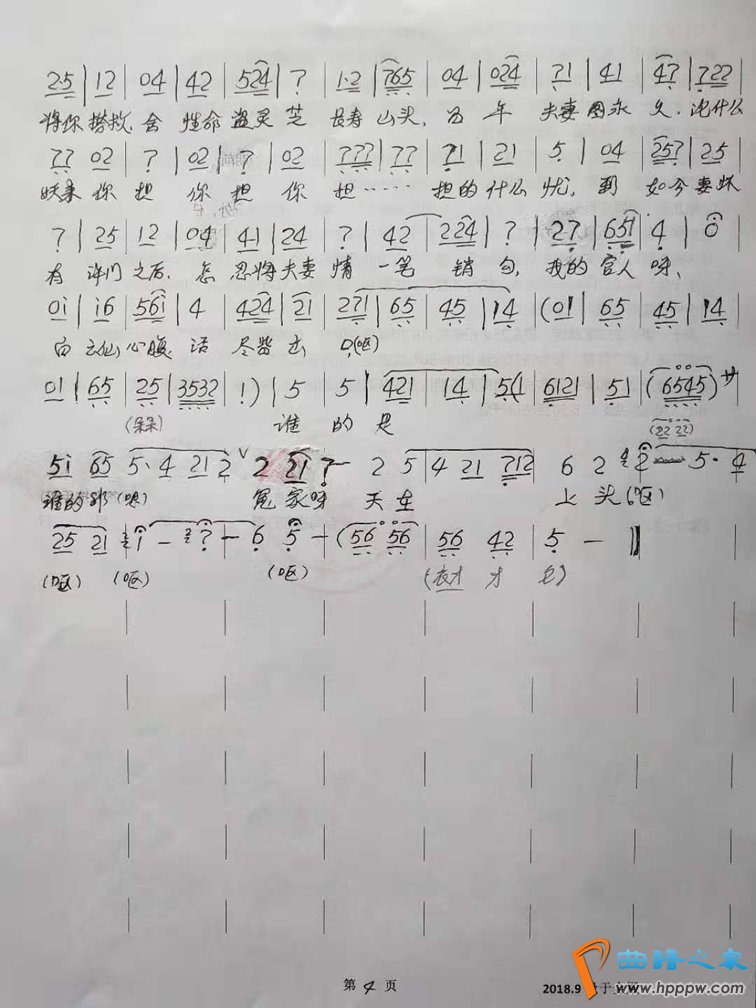 2·5 | 12 | 04 | 42 | 524 | 7 | 1·2 | 765 | 04 | 024 | 71 | 41 | 47 | 722
将你搭救, 舍 性命 盗灵 芝 长寿 山头, 为 年 夫妻图永 久. 说什么
77 | 02 | 7 | 02 | 7 | 02 | 777 | 77 | 71 | 21 | 5 | 04 | 257 | 25
妖来 你 担 你 担 你 担 …… 担的什么 忧, 到 如今妻怀
7 | 25 | 12 | 024 | 41 | 24 | 7 | 42 | 224 | 7 | 27 | 651 | 4 | 0
有 许门 之后. 怎 忍将夫妻 情 一笔 销 勾, 我的 官人 呀、
01 | 16 | 561 | 4 | 424 | 21 | 271 | 65 | 45 | 14 | (01 | 65 | 45 | 14
白 云仙心腹 话 尽皆 出 口(呕)
01 | 65 | 25 | 3532 | 1) | 5 | 5 | 421 14 | 54 | 6121 | 51 | (6545) サ
谁 的 是
(22 22)
51 65 5·4 21 2 ∨ 2 21 7 — 2 5 | 4 21 712 | 6 2 2 5·4
谁的非 冤 家呀 天在 上 头(呕)
25 21 | 1 — 7 — 6 5 — (56 56 | 56 42 | 5 — ‖
(呕) (呕) (呕) (衣才 才 仓)
第 4 页
2018.9
曲谱之家
www.hpppw.com